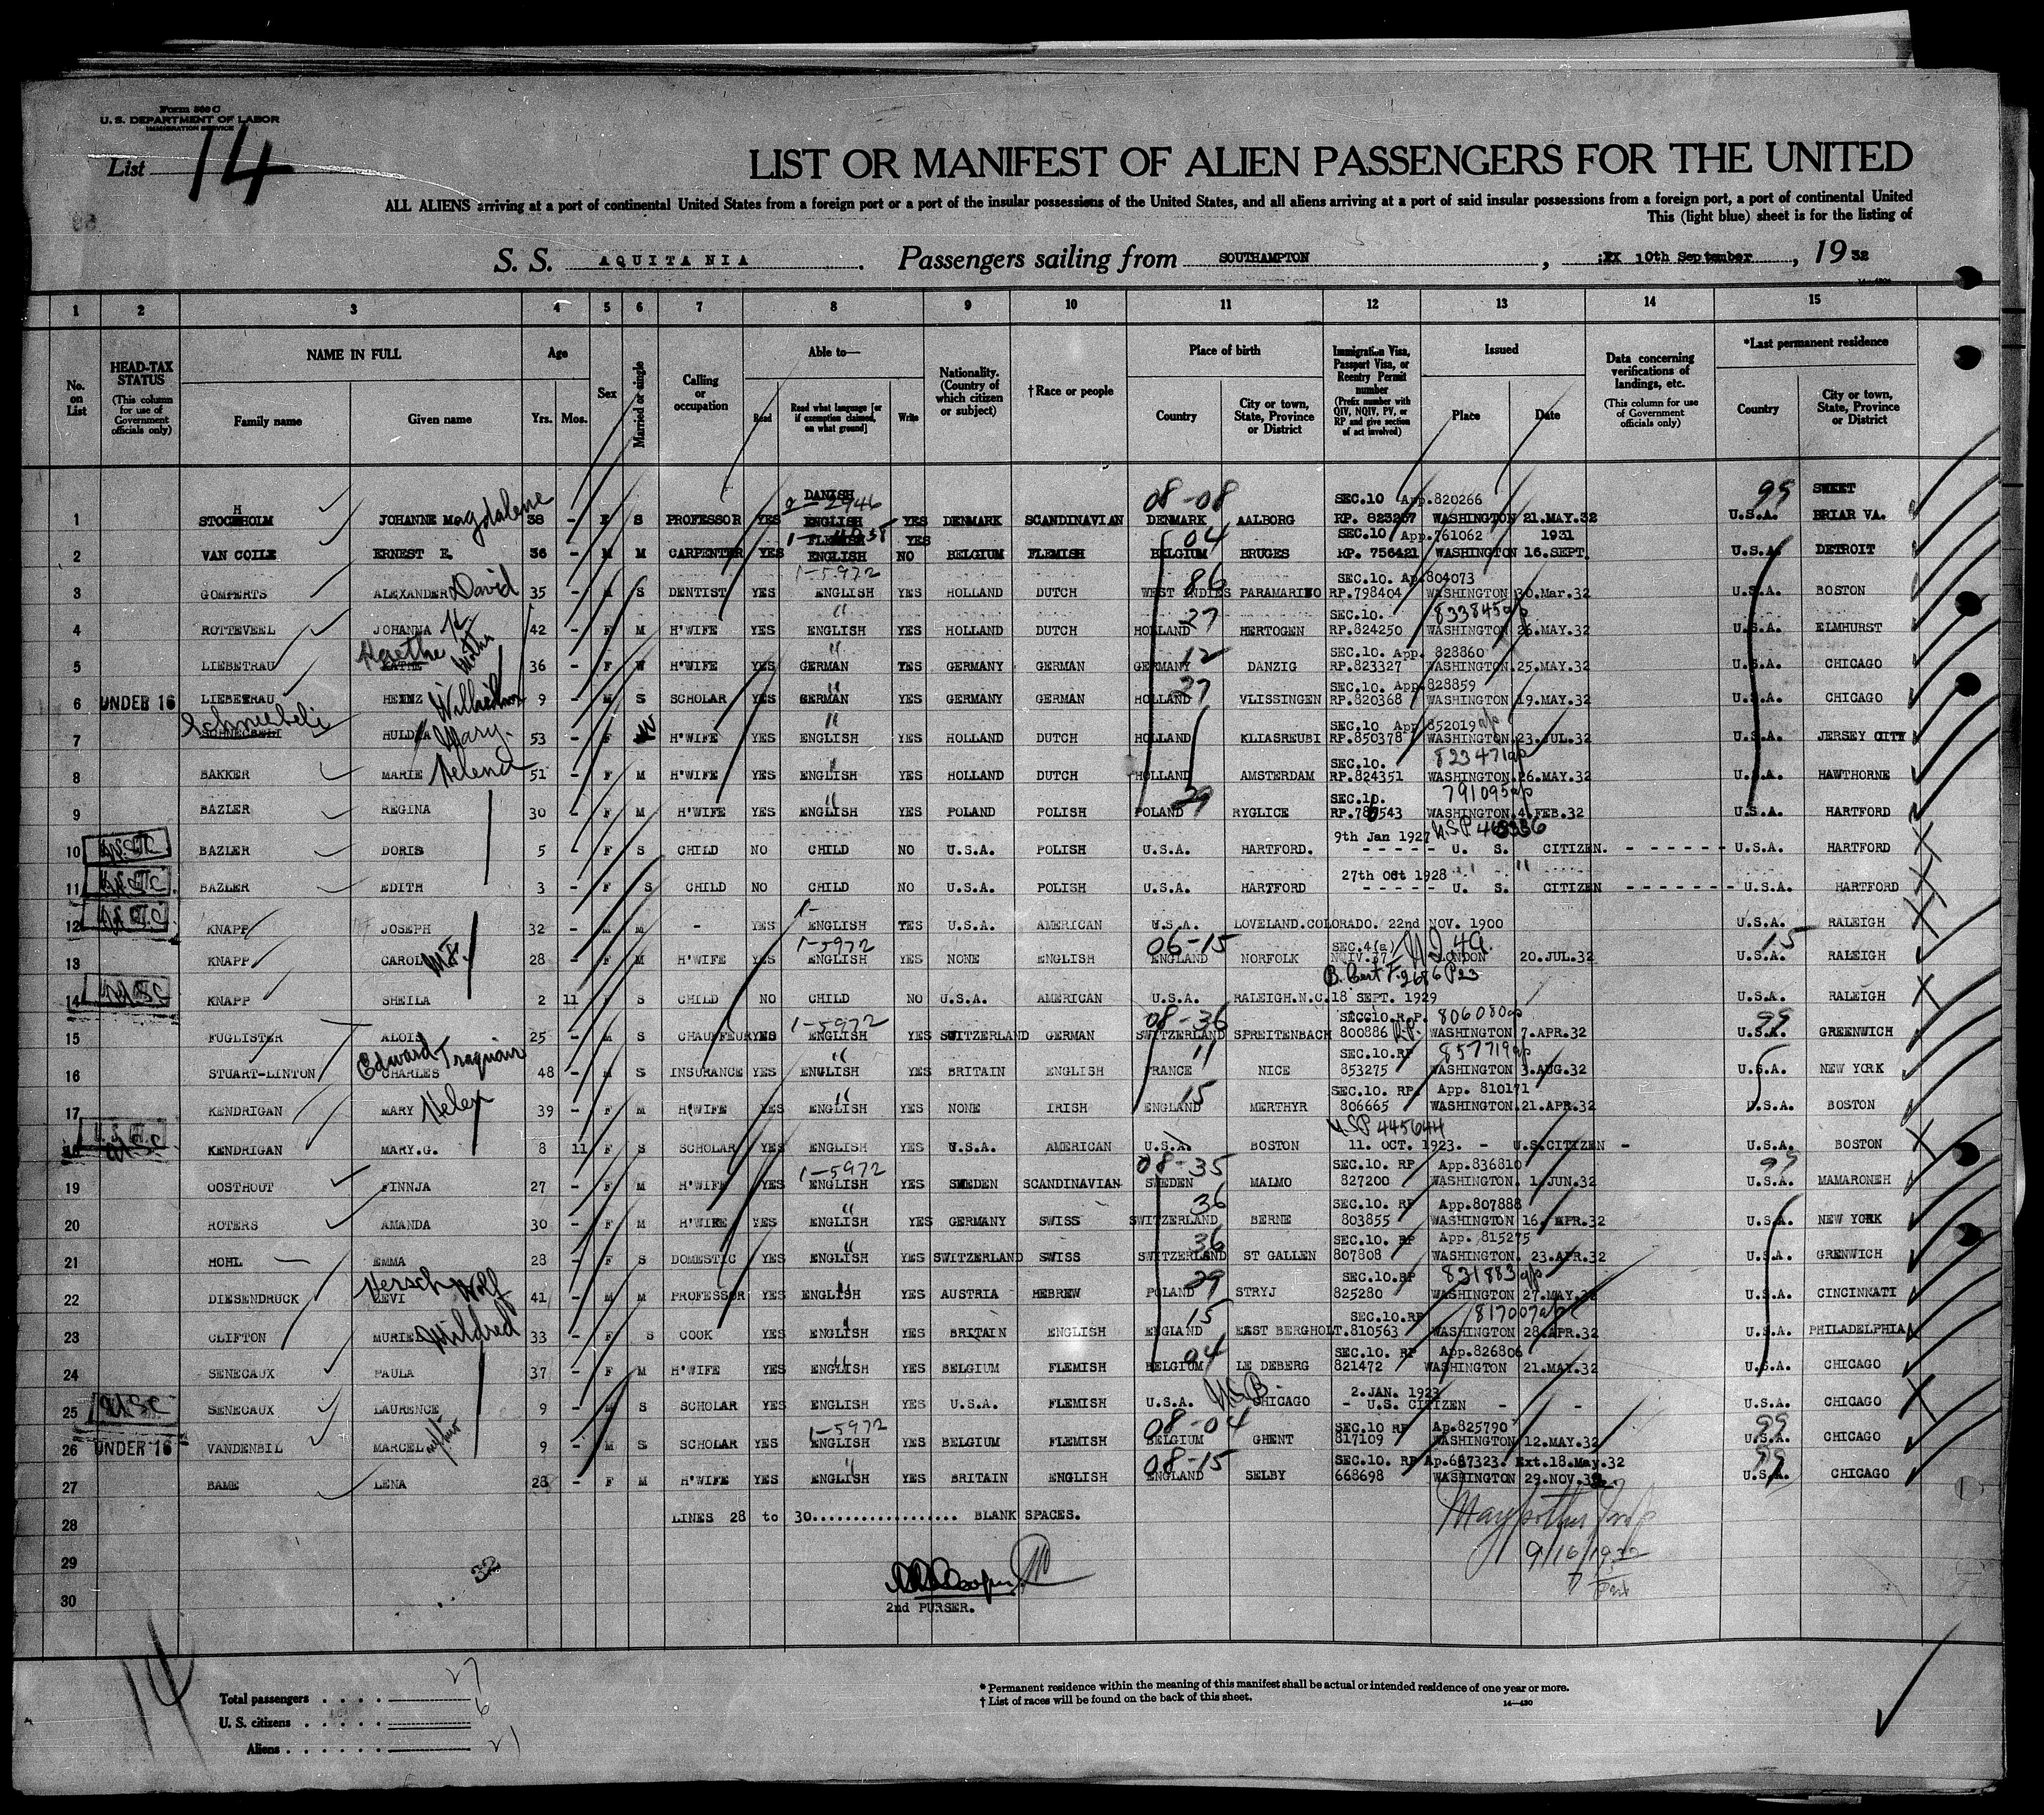 Form 500 C
U. S. DEPARTMENT OF LABOR
IMMIGRATION SERVICE
List 14
LIST OR MANIFEST OF ALIEN PASSENGERS FOR THE UNITED
ALL ALIENS arriving at a port of continental United States from a foreign port or a port of the insular possessions of the United States, and all aliens arriving at a port of said insular possessions from a foreign port, a port of continental United
This (light blue) sheet is for the listing of
S. S. AQUITANIA. Passengers sailing from SOUTHAMPTON, 10th September, 1932
1 2 3 4 5 6 7 8 9 10 11 12 13 14 15
No. on List
HEAD-TAX STATUS (This column for use of Government officials only)
NAME IN FULL Family name Given name
Age Yrs. Mos.
Sex
Married or single
Calling or occupation
Able to— Read Read what language [or if exemption claimed, on what ground] Write
Nationality. (Country of which citizen or subject)
† Race or people
Place of birth Country City or town, State, Province or District
Immigration Visa, Passport Visa, or Reentry Permit number (Prefix number with QIV, NQIV, PV, or RP and give section of act involved)
Issued Place Date
Data concerning verifications of landings, etc. (This column for use of Government officials only)
*Last permanent residence Country City or town, State, Province or District
DANISH 2946 08-08 SEC.10 App.820266 99 SWEET
1 STOCKHOLM JOHANNE Magdalene 38 - F S PROFESSOR YES ENGLISH YES DENMARK SCANDINAVIAN DENMARK AALBORG RP. 823267 WASHINGTON 21.MAY.32 U.S.A. BRIAR VA.
FLEMISH YES 04 SEC.10 App.761062 1931
2 VAN COILE ERNEST E. 36 - M M CARPENTER YES ENGLISH NO BELGIUM FLEMISH BELGIUM BRUGES RP. 756421 WASHINGTON 16.SEPT. U.S.A. DETROIT
1-5972 86 SEC.10. Ap.804073
3 GOMPERTS ALEXANDER David 35 - M S DENTIST YES ENGLISH YES HOLLAND DUTCH WEST INDIES PARAMARIBO RP.798404 WASHINGTON 30.Mar.32 U.S.A. BOSTON
" 27 SEC.10. 833845 ap
4 ROTTEVEEL JOHANNA H. 42 - F M H'WIFE YES ENGLISH YES HOLLAND DUTCH HOLLAND HERTOGEN RP.824250 WASHINGTON 26.MAY.32 U.S.A. ELMHURST
Kaethe Martha " 12 SEC.10. App. 828860
5 LIEBETRAU KATHE 36 - F W H'WIFE YES GERMAN YES GERMANY GERMAN GERMANY DANZIG RP.823327 WASHINGTON.25.MAY.32 U.S.A. CHICAGO
" 27 SEC.10. App.828859
6 UNDER 16 LIEBETRAU HEINZ Wilhelm 9 - M S SCHOLAR YES GERMAN YES GERMANY GERMAN HOLLAND VLISSINGEN RP.820368 WASHINGTON 19.MAY.32 U.S.A. CHICAGO
Schneebeli " SEC.10 App.852019 ap
7 HULDA Mary. 53 - F W H'WIFE YES ENGLISH YES HOLLAND DUTCH HOLLAND KLIASREUBI RP.850378 WASHINGTON.23.JUL.32 U.S.A. JERSEY CITY
SEC.10. 823471 ap
8 BAKKER MARIE Helena 51 - F M H'WIFE YES ENGLISH YES HOLLAND DUTCH HOLLAND AMSTERDAM RP.824351 WASHINGTON.26.MAY.32 U.S.A. HAWTHORNE
" 29 SEC.10. 791095 ap
9 BAZLER REGINA 30 - F M H'WIFE YES ENGLISH YES POLAND POLISH POLAND RYGLICE RP.780543 WASHINGTON.4.FEB.32 U.S.A. HARTFORD
9th Jan 1927 U.S.P
10 BAZLER DORIS 5 - F S CHILD NO CHILD NO U.S.A. POLISH U.S.A. HARTFORD. - - - - - U. S. CITIZEN. - - - - - - U.S.A. HARTFORD
27th Oct 1928 " "
11 BAZLER EDITH 3 - F S CHILD NO CHILD NO U.S.A. POLISH U.S.A. HARTFORD - - - - - U. S. CITIZEN - - - - - - U.S.A. HARTFORD
12 KNAPP JOSEPH 32 - M M - YES ENGLISH YES U.S.A. AMERICAN U.S.A. LOVELAND.COLORADO. 22nd NOV. 1900 U.S.A. RALEIGH
1-5972 06-15 SEC.4(a) 15
13 KNAPP CAROL 28 - F M H'WIFE YES ENGLISH YES NONE ENGLISH ENGLAND NORFOLK NQIV.37 LONDON 20.JUL.32 U.S.A. RALEIGH
B. Cert F. 2686 P23
14 KNAPP SHEILA 2 11 F S CHILD NO CHILD NO U.S.A. AMERICAN U.S.A. RALEIGH.N.C.18 SEPT. 1929 U.S.A. RALEIGH
1-5972 08-36 SEC.10.R.P. 806080 ap 99
15 FUGLISTER ALOIS 25 - M S CHAUFFEUR YES ENGLISH YES SWITZERLAND GERMAN SWITZERLAND SPREITENBACH 800886 R.P. WASHINGTON 7.APR.32 U.S.A. GREENWICH
Edward Traquair " 11 SEC.10.RP 857719 ap
16 STUART-LINTON CHARLES 48 - M S INSURANCE YES ENGLISH YES BRITAIN ENGLISH FRANCE NICE 853275 WASHINGTON 3.AUG.32 U.S.A. NEW YORK
" 15 SEC.10. RP. App. 810171
17 KENDRIGAN MARY Helen 39 - F M H'WIFE YES ENGLISH YES NONE IRISH ENGLAND MERTHYR 806665 WASHINGTON.21.APR.32 U.S.A. BOSTON
USP 445644
KENDRIGAN MARY.G. 8 11 F S SCHOLAR YES ENGLISH YES U.S.A. AMERICAN U.S.A. BOSTON 11. OCT. 1923. - U.S.CITIZEN - U.S.A. BOSTON
1-5972 08-35 SEC.10. RP App.836810 99
19 OOSTHOUT FINNJA 27 - F M H'WIFE YES ENGLISH YES SWEDEN SCANDINAVIAN SWEDEN MALMO 827200 WASHINGTON. 1.JUN.32 U.S.A. MAMARONEH
" 36 SEC.10. RP App.807888
20 ROTERS AMANDA 30 - F M H'WIFE YES ENGLISH YES GERMANY SWISS SWITZERLAND BERNE 803855 WASHINGTON 16. APR.32 U.S.A. NEW YORK
" 36 SEC.10. RP App. 815275
21 HOHL EMMA 28 - F S DOMESTIC YES ENGLISH YES SWITZERLAND SWISS SWITZERLAND ST GALLEN 807808 WASHINGTON. 23.APR.32 U.S.A. GRENWICH
Hersch Wolf " 29 SEC.10.RP 831883 ap
22 DIESENDRUCK LEVI 41 - M M PROFESSOR YES ENGLISH YES AUSTRIA HEBREW POLAND STRYJ 825280 WASHINGTON 27.MAY.32 U.S.A. CINCINNATI
" 15 SEC.10.RP 817007 ap
23 CLIFTON MURIEL Mildred 33 - F S COOK YES ENGLISH YES BRITAIN ENGLISH ENGLAND EAST BERGHOLT.810563 WASHINGTON 28.APR.32 U.S.A. PHILADELPHIA
" 04 SEC.10. RP App.826806
24 SENECAUX PAULA 37 - F M H'WIFE YES ENGLISH YES BELGIUM FLEMISH BELGIUM LE DEBERG 821472 WASHINGTON 21.MAY.32 U.S.A. CHICAGO
2.JAN. 1923
25 USC SENECAUX LAURENCE 9 - M S SCHOLAR YES ENGLISH YES U.S.A. FLEMISH U.S.A. CHICAGO - U.S. CITIZEN - - U.S.A. CHICAGO
1-5972 08-04 SEC.10 RP Ap.825790 99
26 UNDER 16 VANDENBIL MARCEL 9 - M S SCHOLAR YES ENGLISH YES BELGIUM FLEMISH BELGIUM GHENT 817109 WASHINGTON 12.MAY.32 U.S.A. CHICAGO
" 08-15 SEC.10. RP Ap.667323. Ext.18.May.32 99
27 BAME LENA 28 - F M H'WIFE YES ENGLISH YES BRITAIN ENGLISH ENGLAND SELBY 668698 WASHINGTON 29.NOV. U.S.A. CHICAGO
28 LINES 28 to 30.................. BLANK SPACES.
29 32
9/16/1932
30
2nd PURSER.
14
Total passengers . . . . 27
U. S. citizens . . . . . 6
Aliens . . . . . . 21
* Permanent residence within the meaning of this manifest shall be actual or intended residence of one year or more.
† List of races will be found on the back of this sheet.
14—430